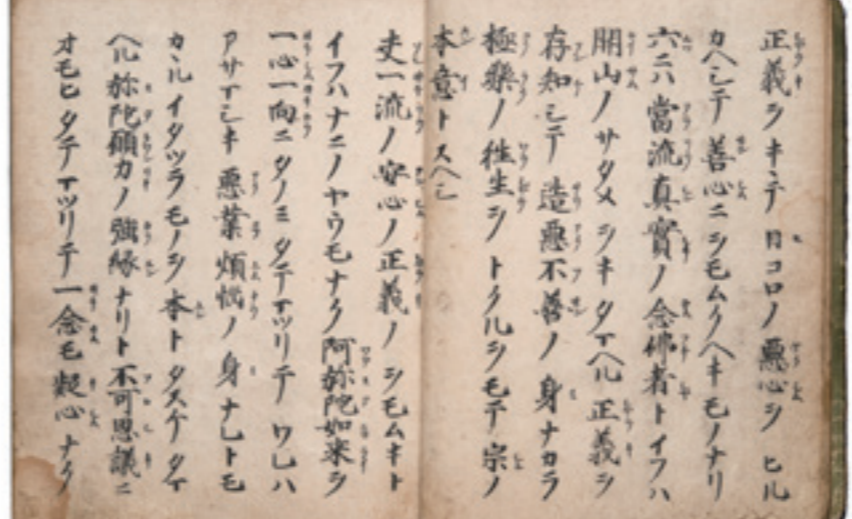 正義ヲキヽテ日コロノ悪心ヲヒル
カヘシテ善心ニヲモムクヘキモノナリ
六ニハ當流真實ノ念佛者トイフハ
開山ノサタメヲキタマヘル正義ヲ
存知シテ造悪不善ノ身ナカラ
極樂ノ徃生ヲトクルヲモテ宗ノ
本意トスヘシ
夫一流ノ安心ノ正義ノヲモムキト
イフハナニノヤウモナク阿弥陀如来ヲ
一心一向ニタノミタテマツリテワレハ
アサマシキ悪業煩悩ノ身ナレトモ
カヽルイタツラモノヲ本トタスケタマ
ヘル弥陀願力ノ強縁ナリト不可思議ニ
オモヒタテマツリテ一念モ疑心ナク